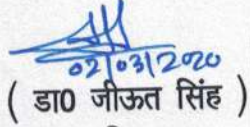 02/03/2020
( डा0 जीऊत सिंह )